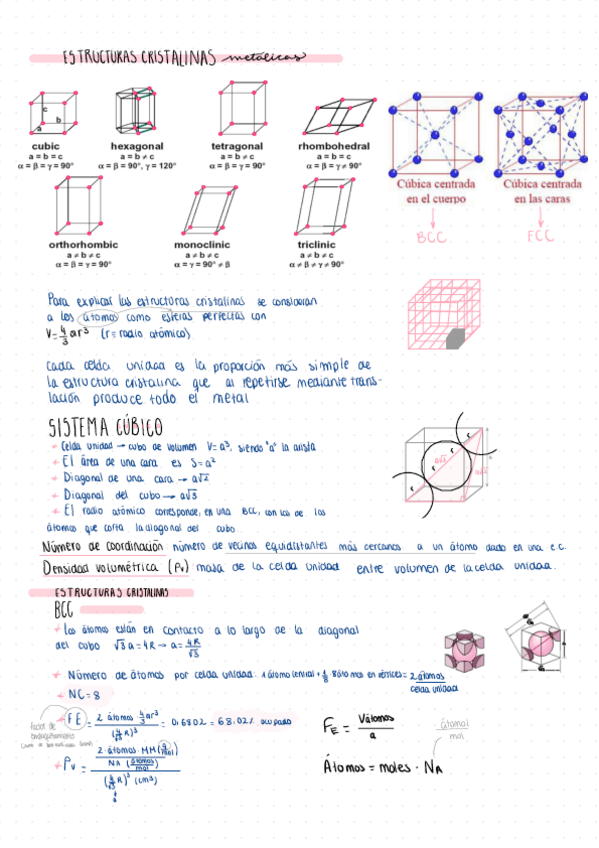 ESTRUCTURAS CRISTALINAS metálicas
c
b
a
cubic
a = b = c
α = β = γ = 90°
hexagonal
a = b ≠ c
α = β = 90°, γ = 120°
tetragonal
a = b ≠ c
α = β = γ = 90°
rhombohedral
a = b = c
α = β = γ ≠ 90°
Cúbica centrada
en el cuerpo
BCC
Cúbica centrada
en las caras
FCC
orthorhombic
a ≠ b ≠ c
α = β = γ = 90°
monoclinic
a ≠ b ≠ c
α = γ = 90° ≠ β
triclinic
a ≠ b ≠ c
α ≠ β ≠ γ ≠ 90°
Para explicar las estructuras cristalinas se consideran
a los átomos como esferas perfectas con
V = 4/3 πr³ (r = radio atómico)
Cada celda unidad es la proporción más simple de
la estructura cristalina que al repetirse mediante trans-
lación produce todo el metal
SISTEMA CÚBICO
+ Celda unidad → cubo de volumen V = a³, siendo "a" la arista
+ El área de una cara es S = a²
+ Diagonal de una cara → a√2
+ Diagonal del cubo → a√3
+ El radio atómico corresponde, en una BCC, con los de los
átomos que corta la diagonal del cubo.
Número de coordinación número de vecinos equidistantes más cercanos a un átomo dado en una e.c.
Densidad volumétrica (ρv) masa de la celda unidad entre volumen de la celda unidad.
ESTRUCTURAS CRISTALINAS
BCC
+ Los átomos están en contacto a lo largo de la diagonal
del cubo √3 a = 4R → a = 4R/√3
+ Número de átomos por celda unidad: 1 átomo central + 1/8 · 8 átomos en vértices = 2 átomos
celda unidad
+ NC = 8
factor de
empaquetamiento
+ FE = 2 átomos · 4/3 πr³ / (4/√3 R)³ = 0.6802 = 68.02% ocupado
FE = Vátomos / a
átomos
mol
+ ρv = 2 átomos · MM (g/mol) / NA (átomos/mol) / (4/√3 R)³ (cm³)
a
Átomos = moles · NA